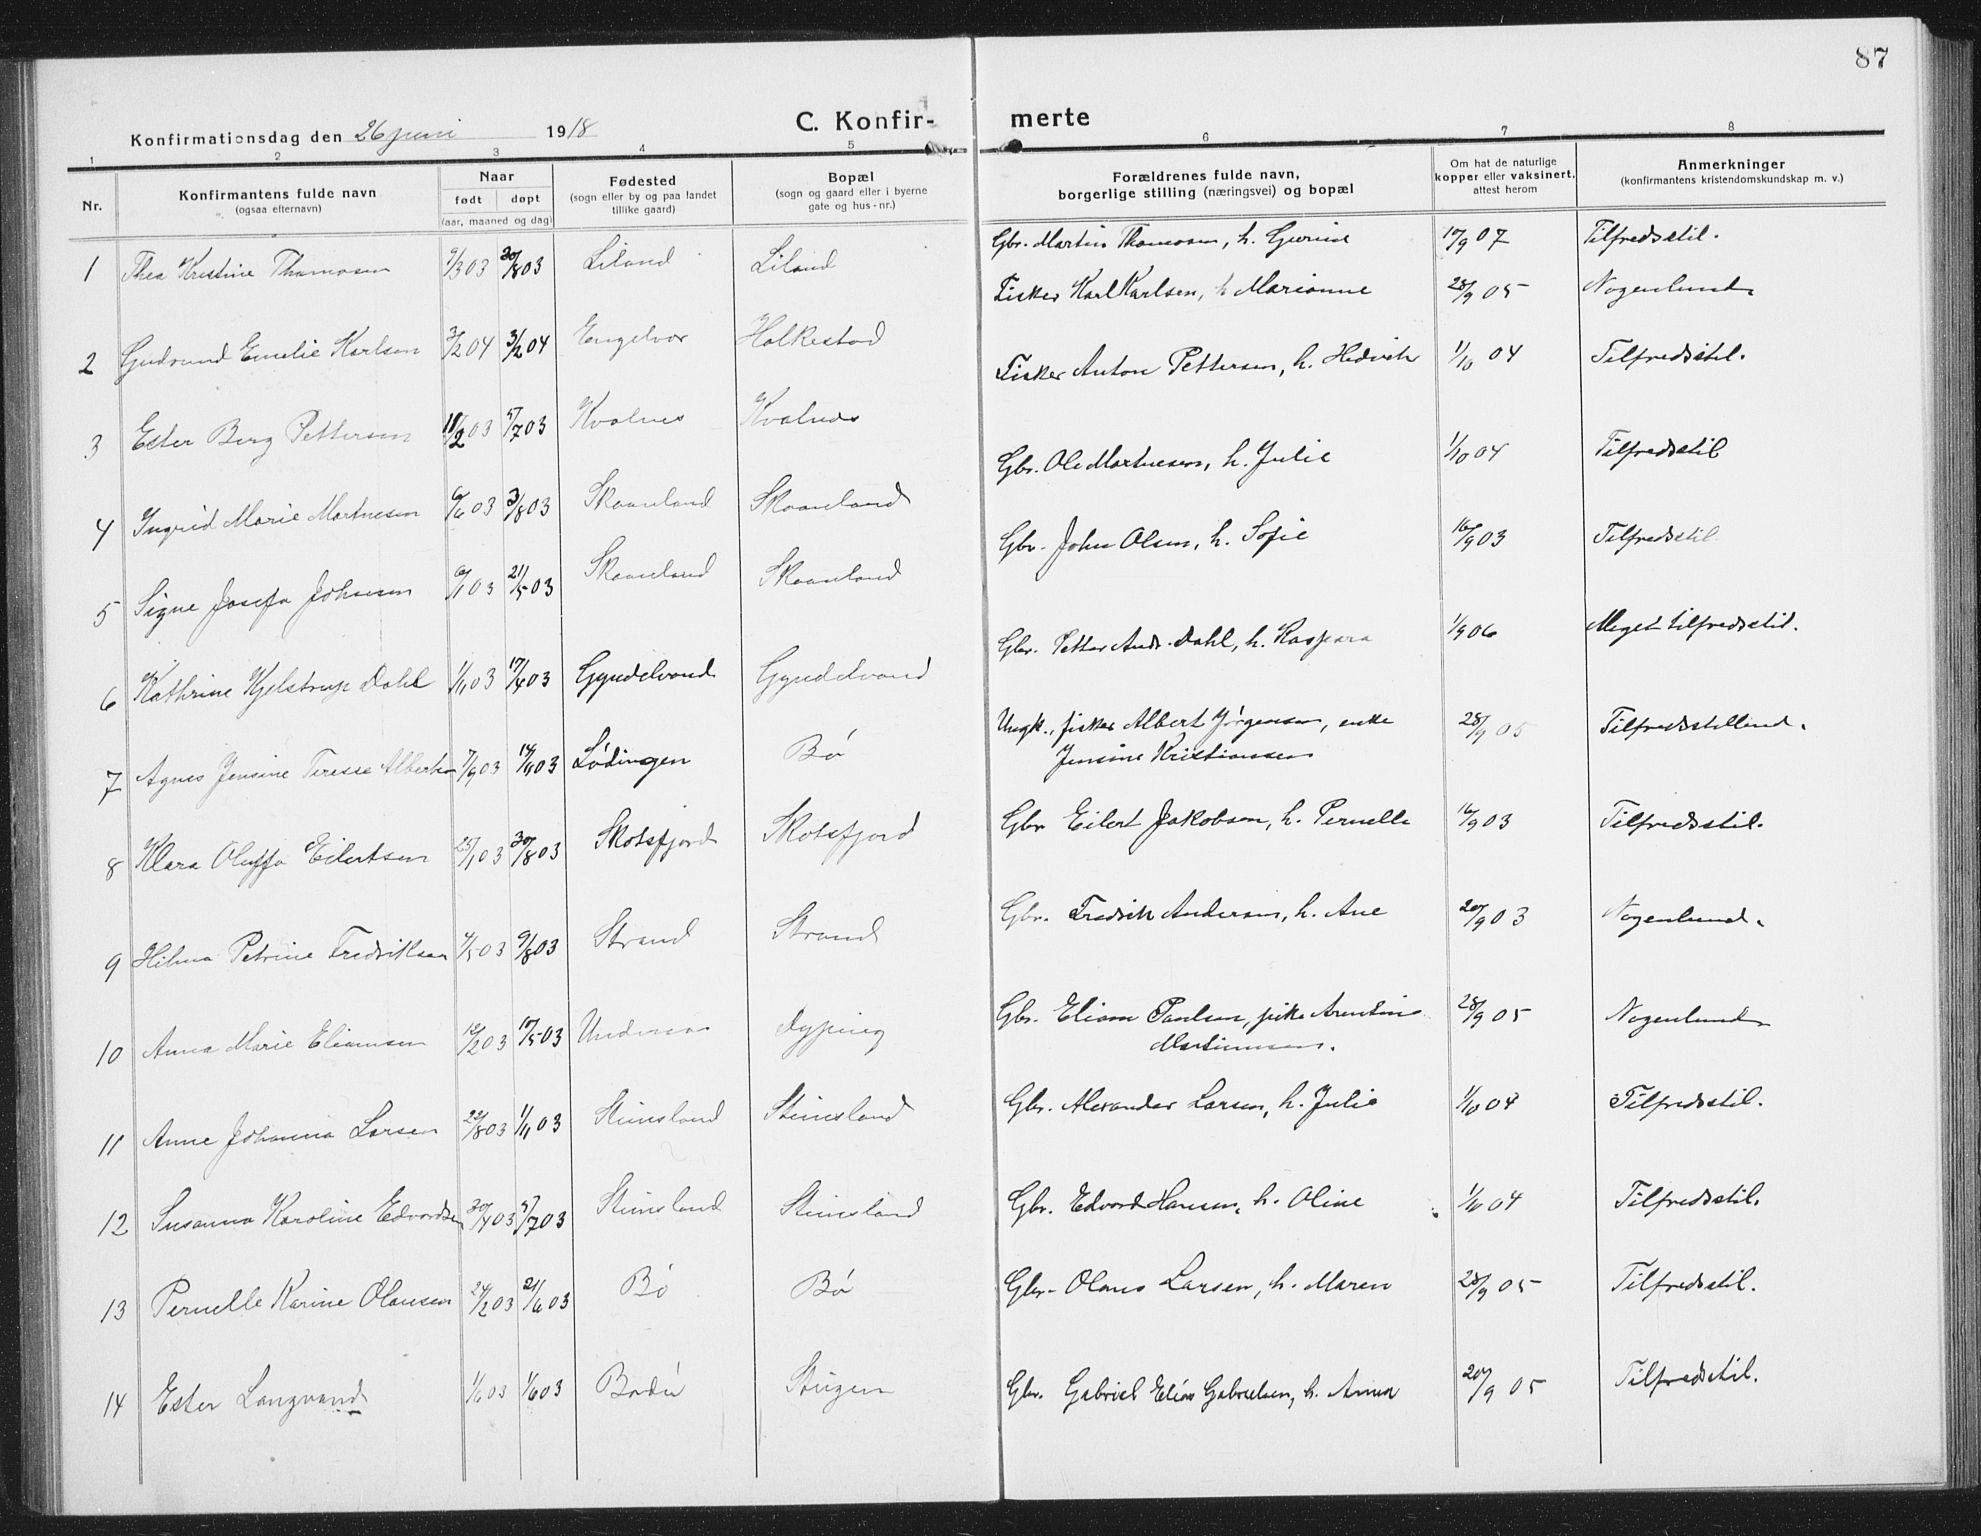 87
Konfirmationsdag den 26 juni 1918
C. Konfirmerte
1 2 3 4 5 6 7 8
Nr.
Konfirmantens fulde navn
(ogsaa efternavn)
Naar
født døpt
(aar, maaned og dag)
Fødested
(sogn eller by og paa landet
tillike gaard)
Bopæl
(sogn og gaard eller i byerne
gate og hus-nr.)
Forældrenes fulde navn,
borgerlige stilling (næringsvei) og bopæl
Om hat de naturlige
kopper eller vaksinert,
attest herom
Anmerkninger
(konfirmantens kristendomskundskap m. v.)
1 Thea Kristine Thomasen 9/3 03 30/8 03 Liland Liland Gbr. Martin Thomasen, h. Gurine 17/9 07 Tilfredsstil.
2 Gudrund Emelie Karlsen 3/2 04 3/2 04 Engelvær Halkestad Fisker Karl Karlsen, h. Marianne 28/9 05 Nogenlund.
3 Ester Berg Pettersen 18/2 03 5/7 03 Kvalnes Kvalnes Fisker Anton Pettersen, h. Hedvik 1/10 04 Tilfredsstil.
4 Ingrid Marie Martnesen 6/6 03 3/8 03 Skaanland Skaanland Gbr. Ole Martnesen, h. Julie 1/10 04 Tilfredsstil
5 Signe Josefa Johnsen 6/1 03 21/5 03 Skaanland Skaanland Gbr. John Olsen, h. Sofie 16/9 03 Tilfredsstil
6 Kathrine Kjelstrup Dahl 1/1 03 17/4 03 Gyndelvand Gyndelvand Gbr. Petter Andr. Dahl, h. Kaspara 1/9 06 Meget tilfredsstil.
7 Agnes Jensine Teresse Albertsen 7/9 03 14/9 03 Lødingen Bø Ungk., fisker Albert Jørgensen, enke
Jensine Kristiansen 28/9 05 Tilfredsstillend.
8 Klara Oluffa Eilertsen 25/1 03 30/8 03 Skotsfjord Skotsfjord Gbr Eilert Jakobsen, h. Pernelle 16/9 03 Tilfredsstil.
9 Hilma Petrine Fredriksen 4/5 03 9/8 03 Strand Strand Gbr. Fredrik Andersen, h. Ane 20/9 03 Nogenlund.
10 Anna Marie Eliamsen 12/2 03 17/5 03 Dyping Gbr. Eliam Paulsen, pike Arentine
Martinussen. 28/9 05 Nogenlund
11 Anne Johanna Larsen 22/8 03 1/11 03 Stinesland Stinesland Gbr. Alexander Larsen, h. Julie 1/10 04 Tilfredsstil.
12 Susanna Karoline Edvardsen 30/4 03 5/7 03 Stinesland Stinesland Gbr. Edvard Hansen, h. Oline 1/10 04 Tilfredsstil.
13 Pernelle Karine Olausen 24/2 03 21/6 03 Bø Bø Gbr. Olaus Larsen, h. Maren 28/9 05 Tilfredsstil.
14 Ester Langvand 1/6 03 1/6 03 Bodø Gbr. Gabriel Elias Gabrielsen, h. Anna 20/9 05 Tilfredsstil.